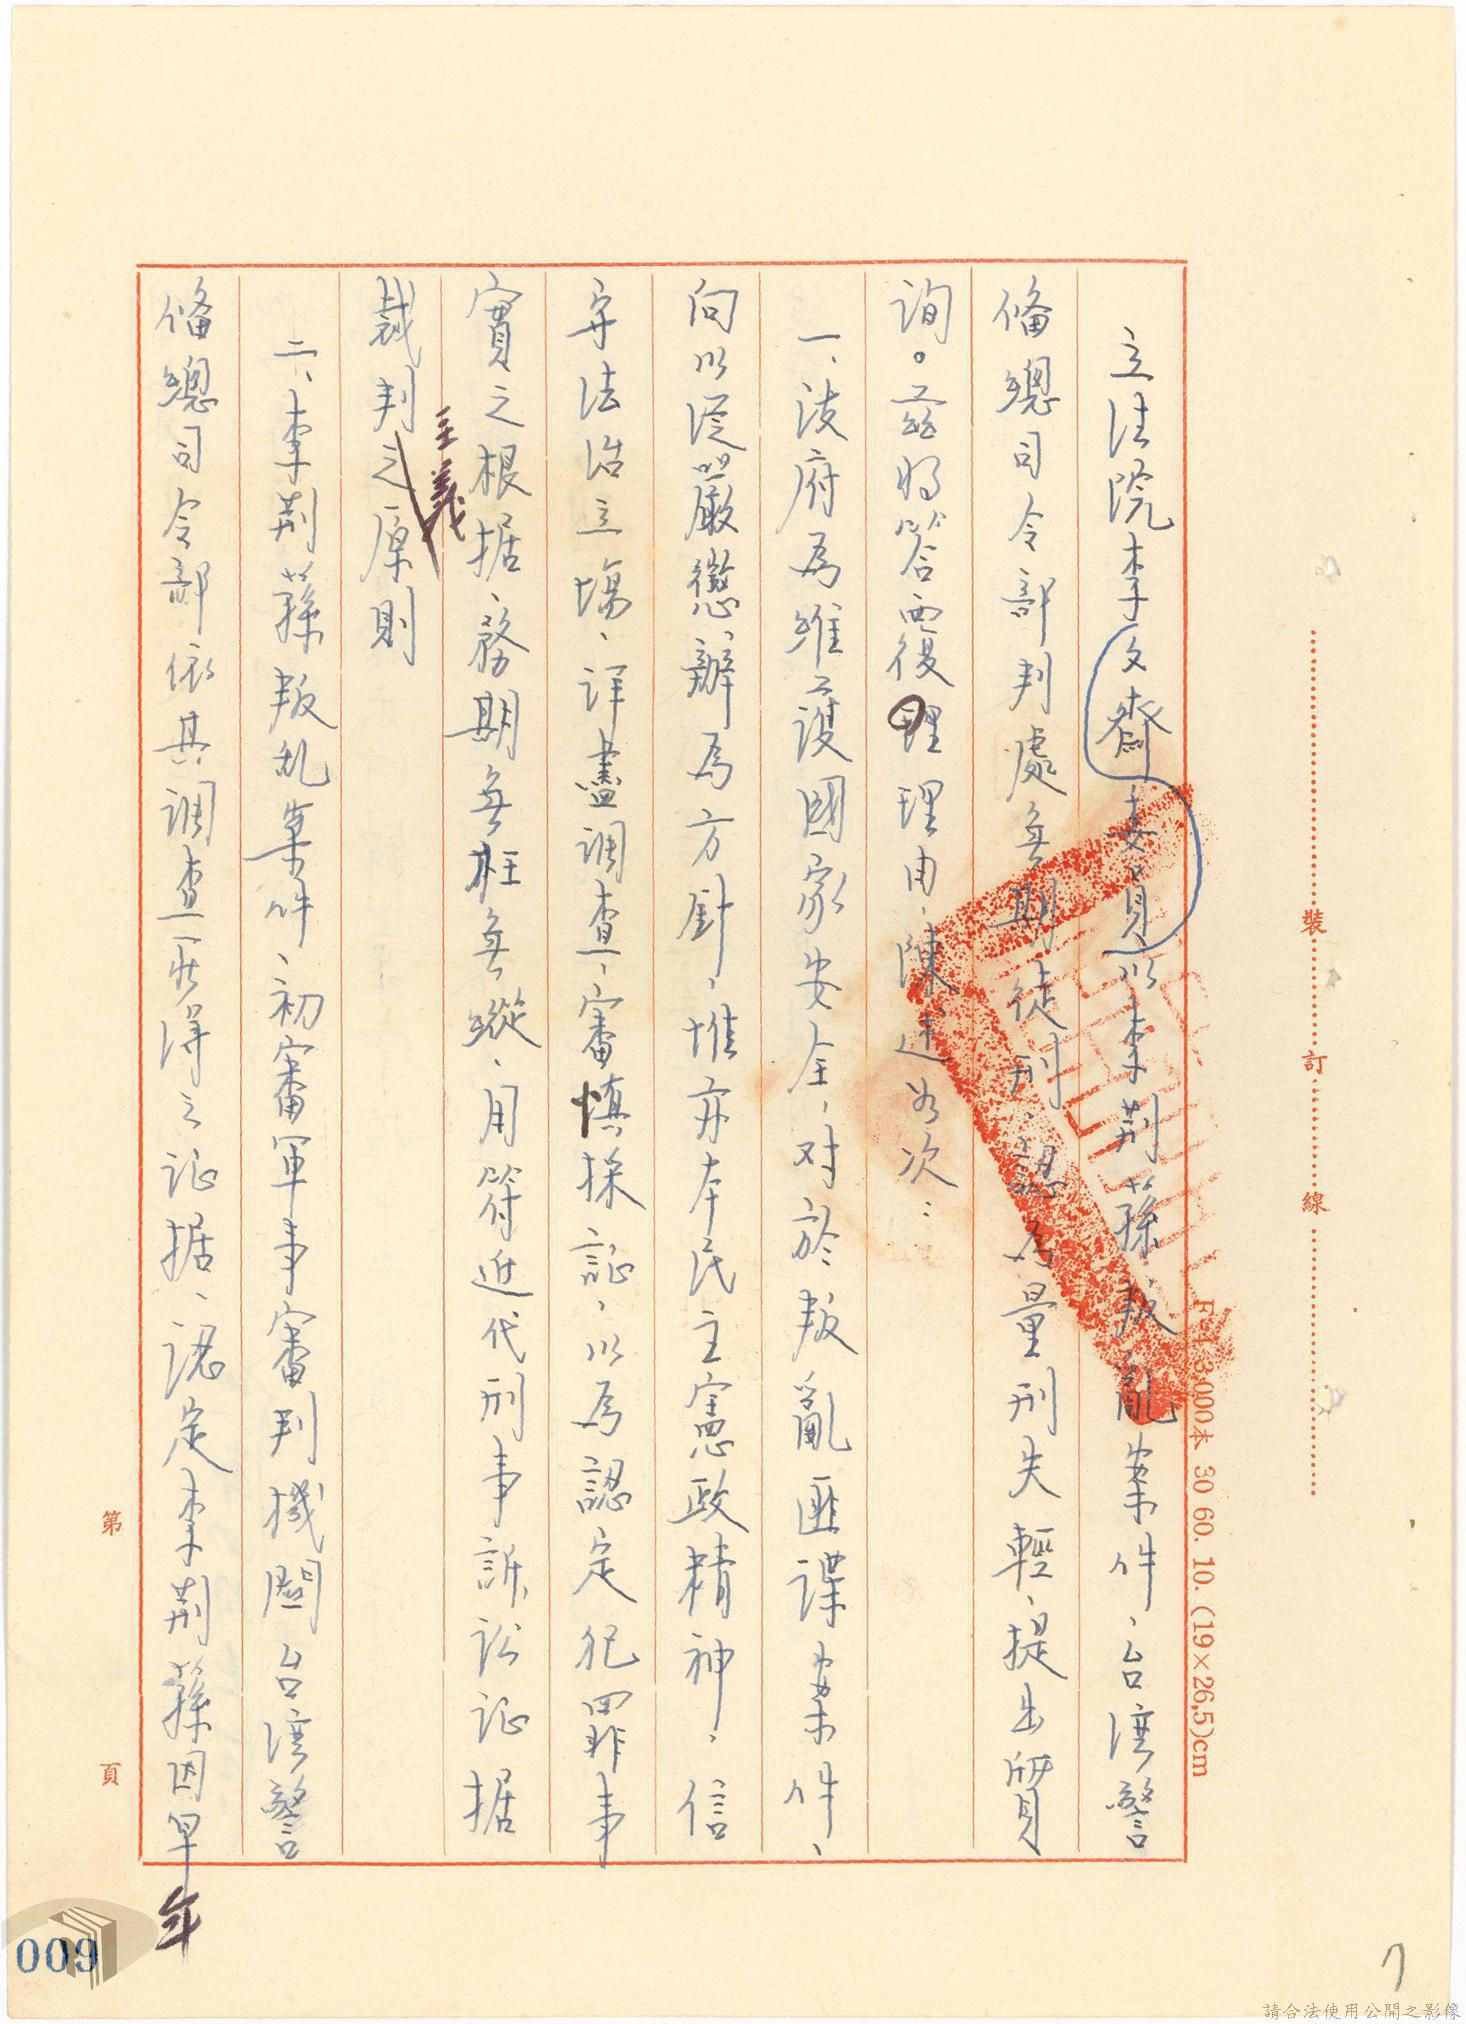 立法院李文齋委員以李荊蓀叛亂案件、台湾警
俻總司令部判處無期徒刑、認為量刑失輕、提出質
詢。茲將答覆理理由、陳述如次：
一、政府為維護國家安全、对於叛亂匪諜案件、
向以從嚴懲辦為方針、惟亦本民主憲政精神、信
守法治立場、詳盡調查、審慎採証、以為認定犯罪事
實之根据、務期無枉無縱、用符近代刑事訴訟証据
裁判之原則
主義
二、李荊蓀叛乱案件、初審軍事審判機関台湾警
俻總司令部依其調查所得之証据、認定李荊蓀因早
年
裝
訂
線
F-1 3.000本 30 60. 10. (19×26,5)cm
第
頁
009
7
請合法使用公開之影像